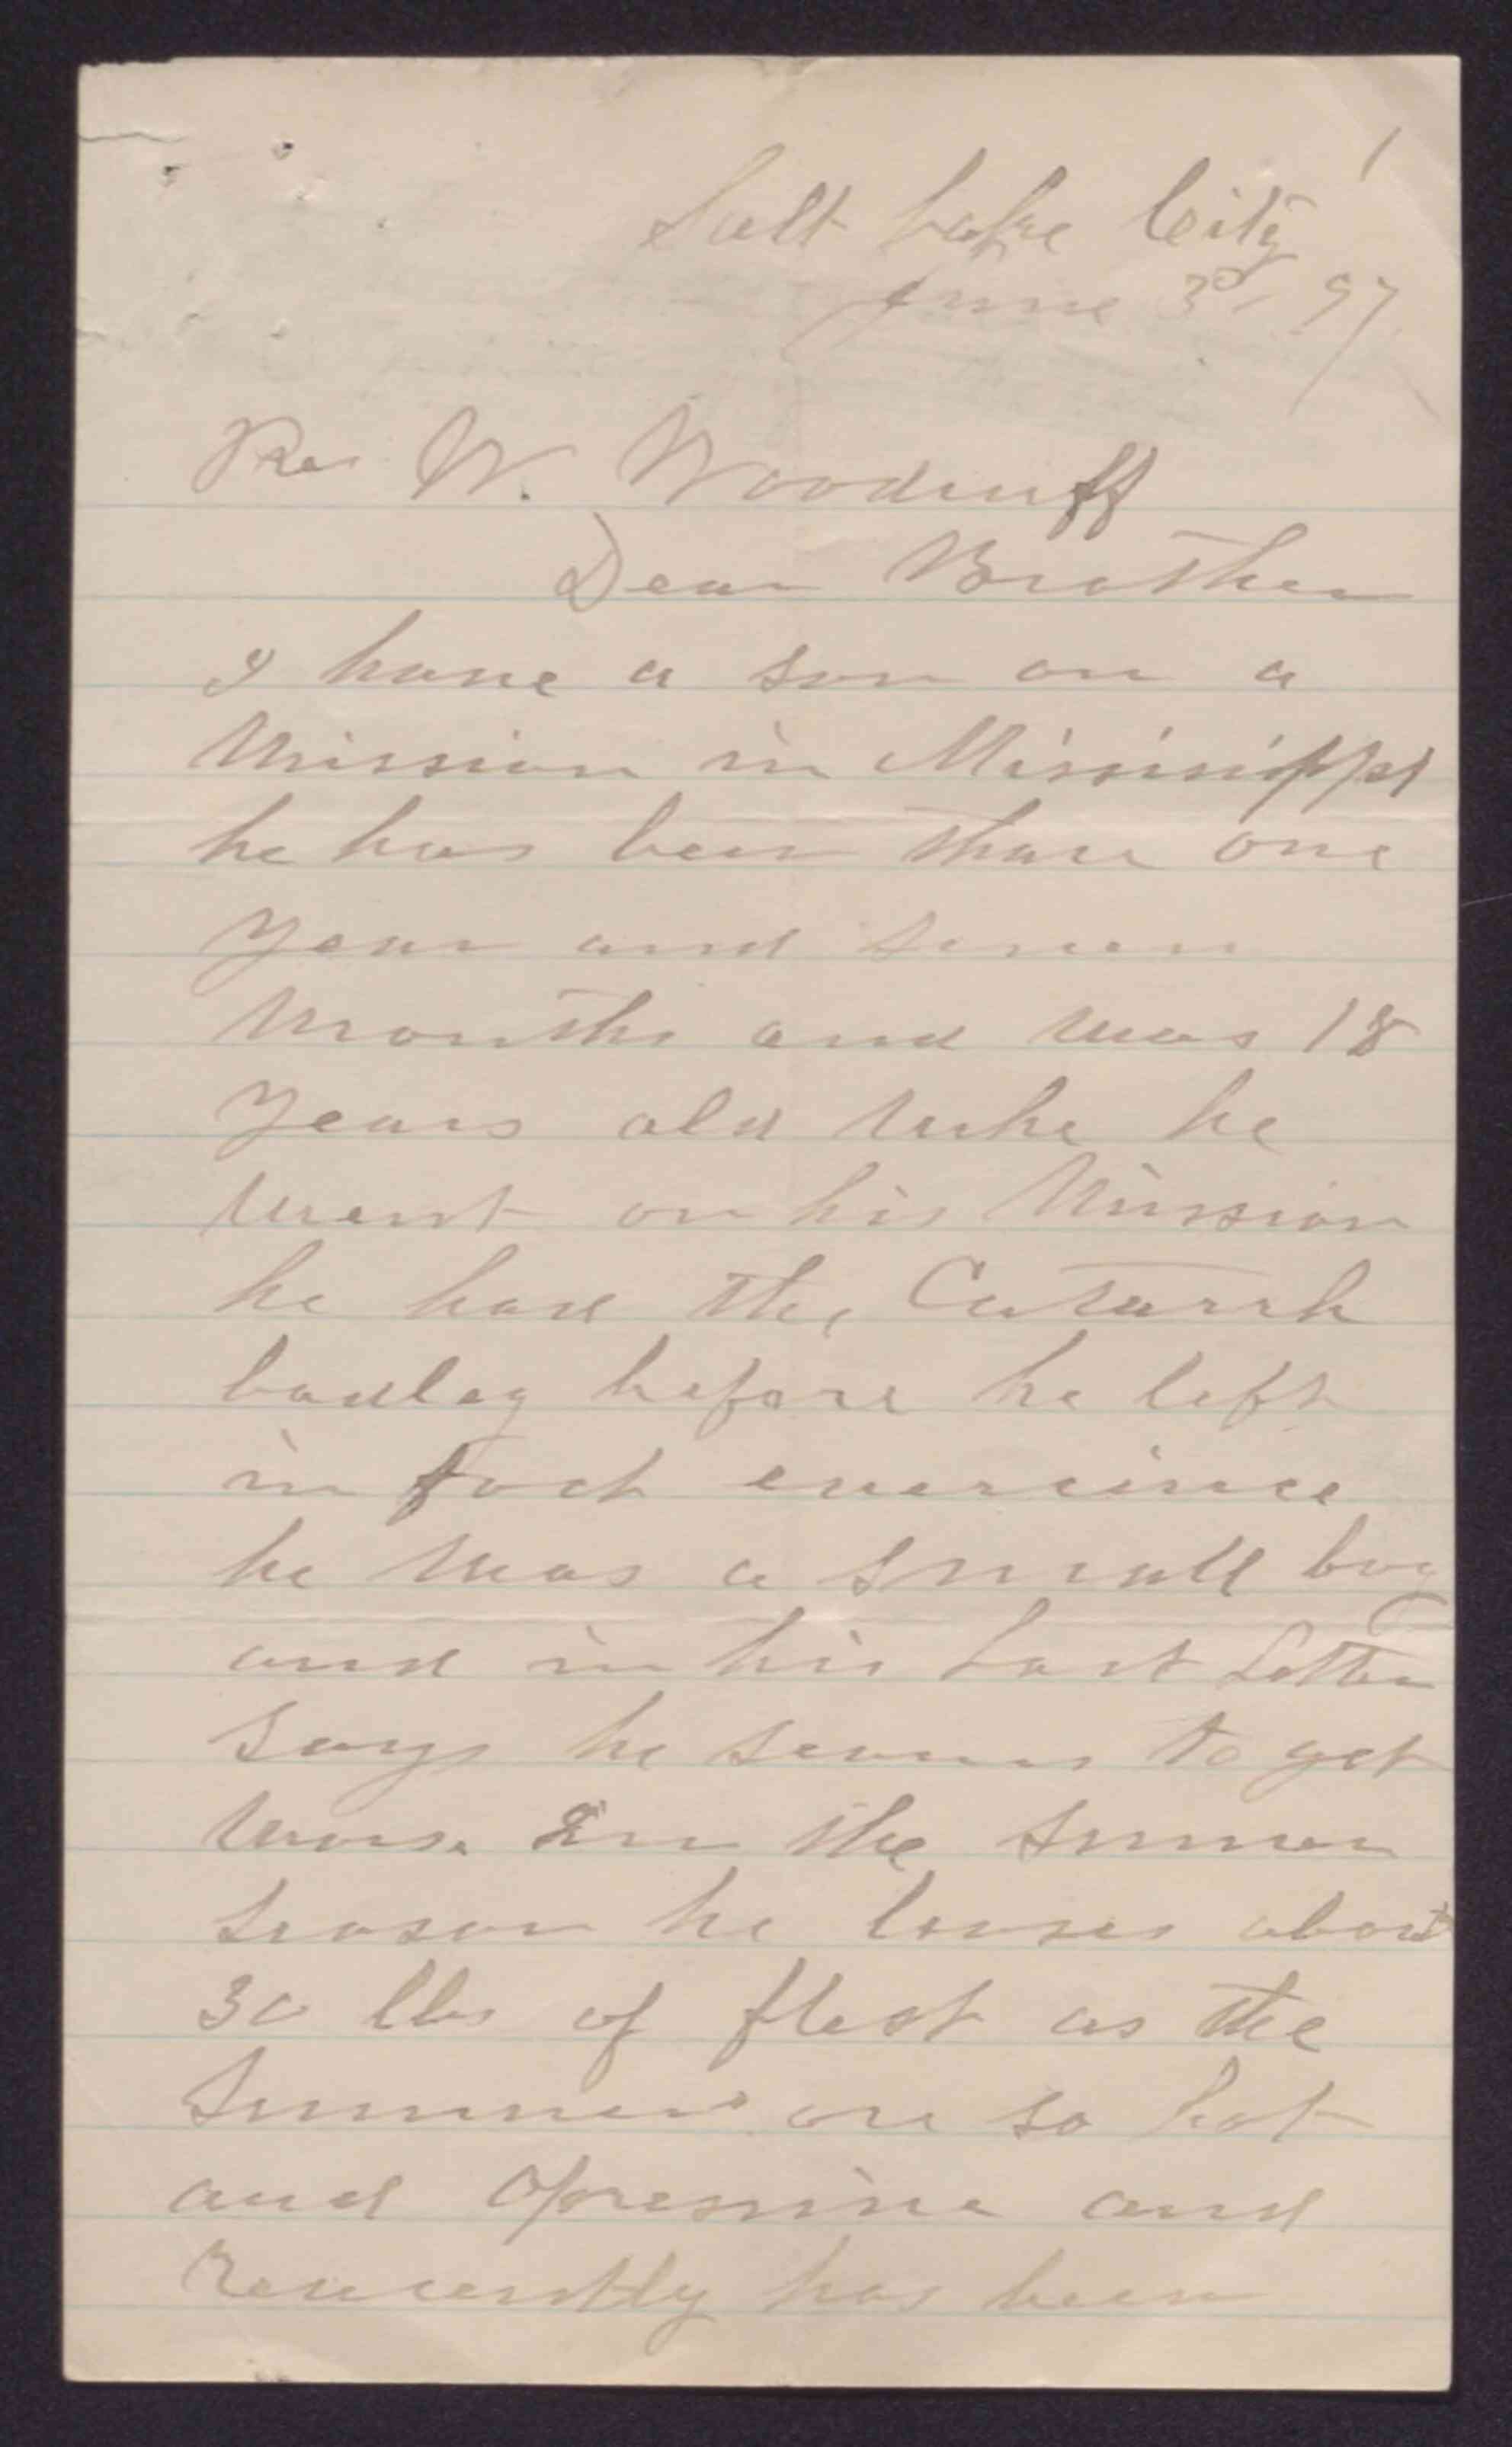 1
Salt Lake City
June 3d 97
Pres W. Woodruff
Dear Brother
I have a son on a
Mission in Mississippi
he has been thare one
year and seven
months and was 18
years old whe he
went on his Mission
he had the Catarrh
badley before he left
in fact ever cince
he was a small boy
and in his Last Letter
says he seams to get
worse In the summer
season he looses about
30 lbs of flesh as the
Summers are so hot
and Opressive and
has been